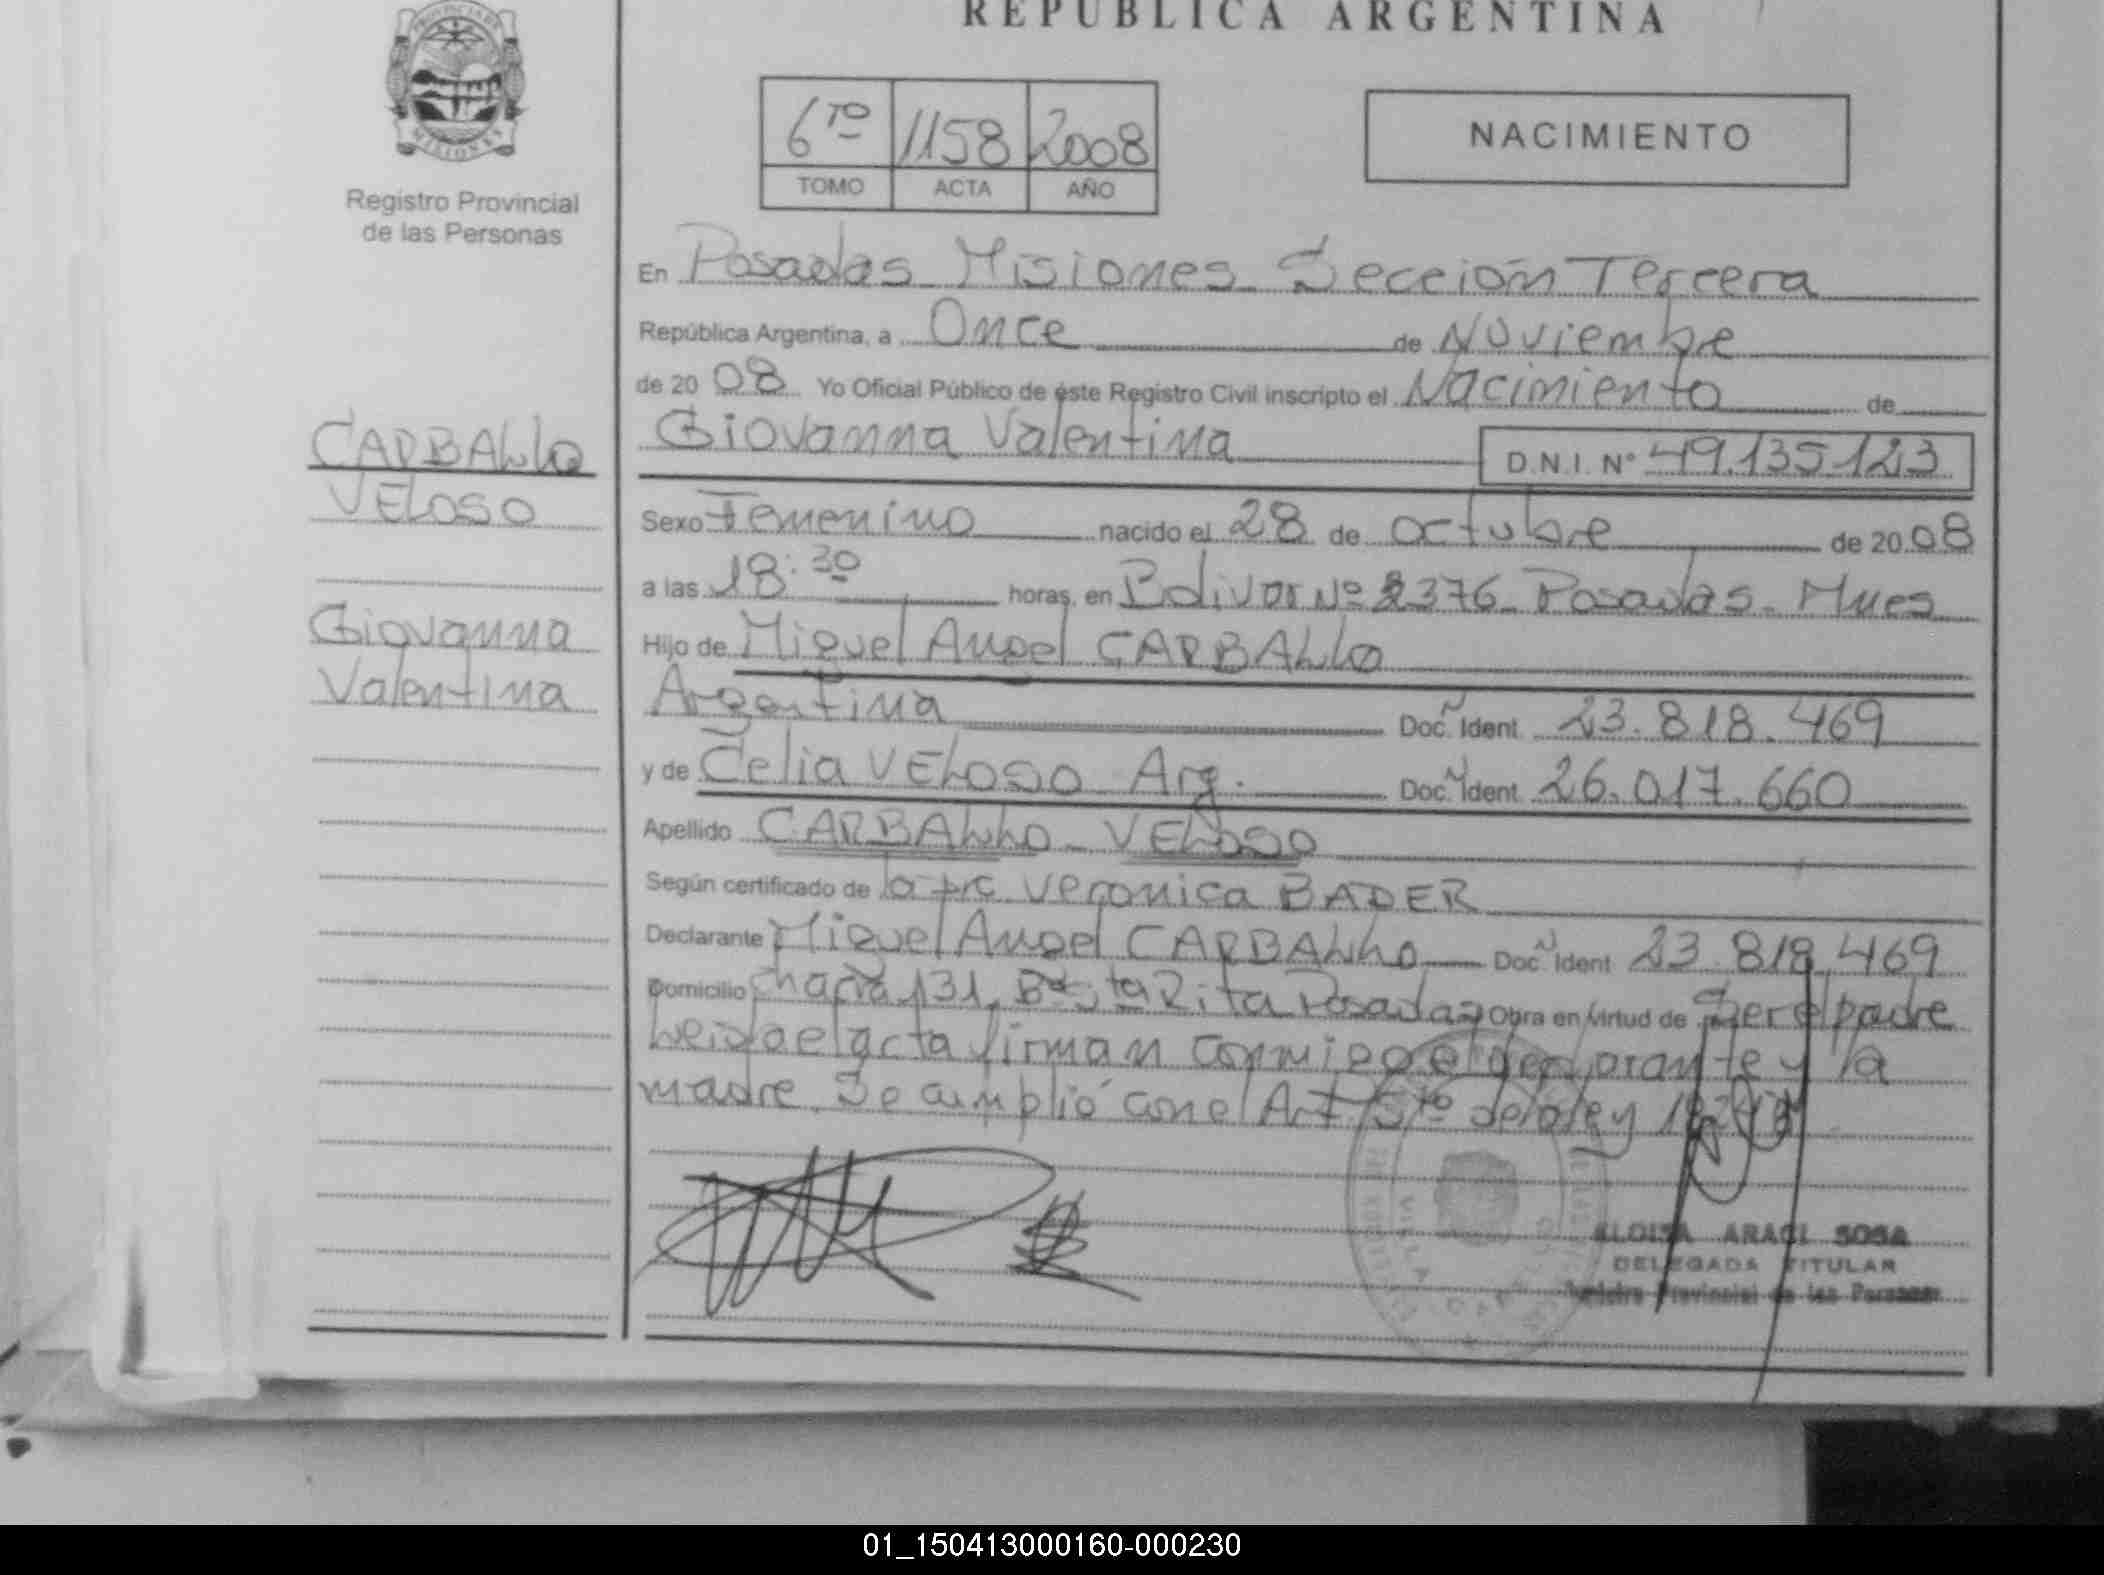 REPUBLICA ARGENTINA
PROVINCIA DE
MISIONES
Registro Provincial
de las Personas
6TO 1158 2008
TOMO ACTA AÑO
NACIMIENTO
En Posadas Misiones Sección Tercera
República Argentina, a Once de Noviembre
de 2008 Yo Oficial Público de éste Registro Civil inscripto el Nacimiento de
Giovanna Valentina D.N.I. Nº 49.135.123
CARBALLO
VELOSO
Giovanna
Valentina
Sexo Femenino nacido el 28 de octubre de 2008
a las 18:30 horas, en Bolivar Nº 2376 Posadas - Mnes
Hijo de Miguel Angel CARBALLO
Argentina Doc. Ident 23.818.469
y de Celia VELOSO Arg. Doc. Ident 26.017.660
Apellido CARBALLO - VELOSO
Según certificado de la prc Veronica BADER
Declarante Miguel Angel CARBALLO Doc. Ident 23.818.469
Domicilio Chacra 131, Bº Sta Rita Posadas Obra en virtud de Ser el padre
Leida el acta firman conmigo el declarante y la
madre. Se cumplió con el Art. 5to de la ley
ELOISA ARACI SOSA
DELEGADA TITULAR
Registro Provincial de las Personas
01_150413000160-000230